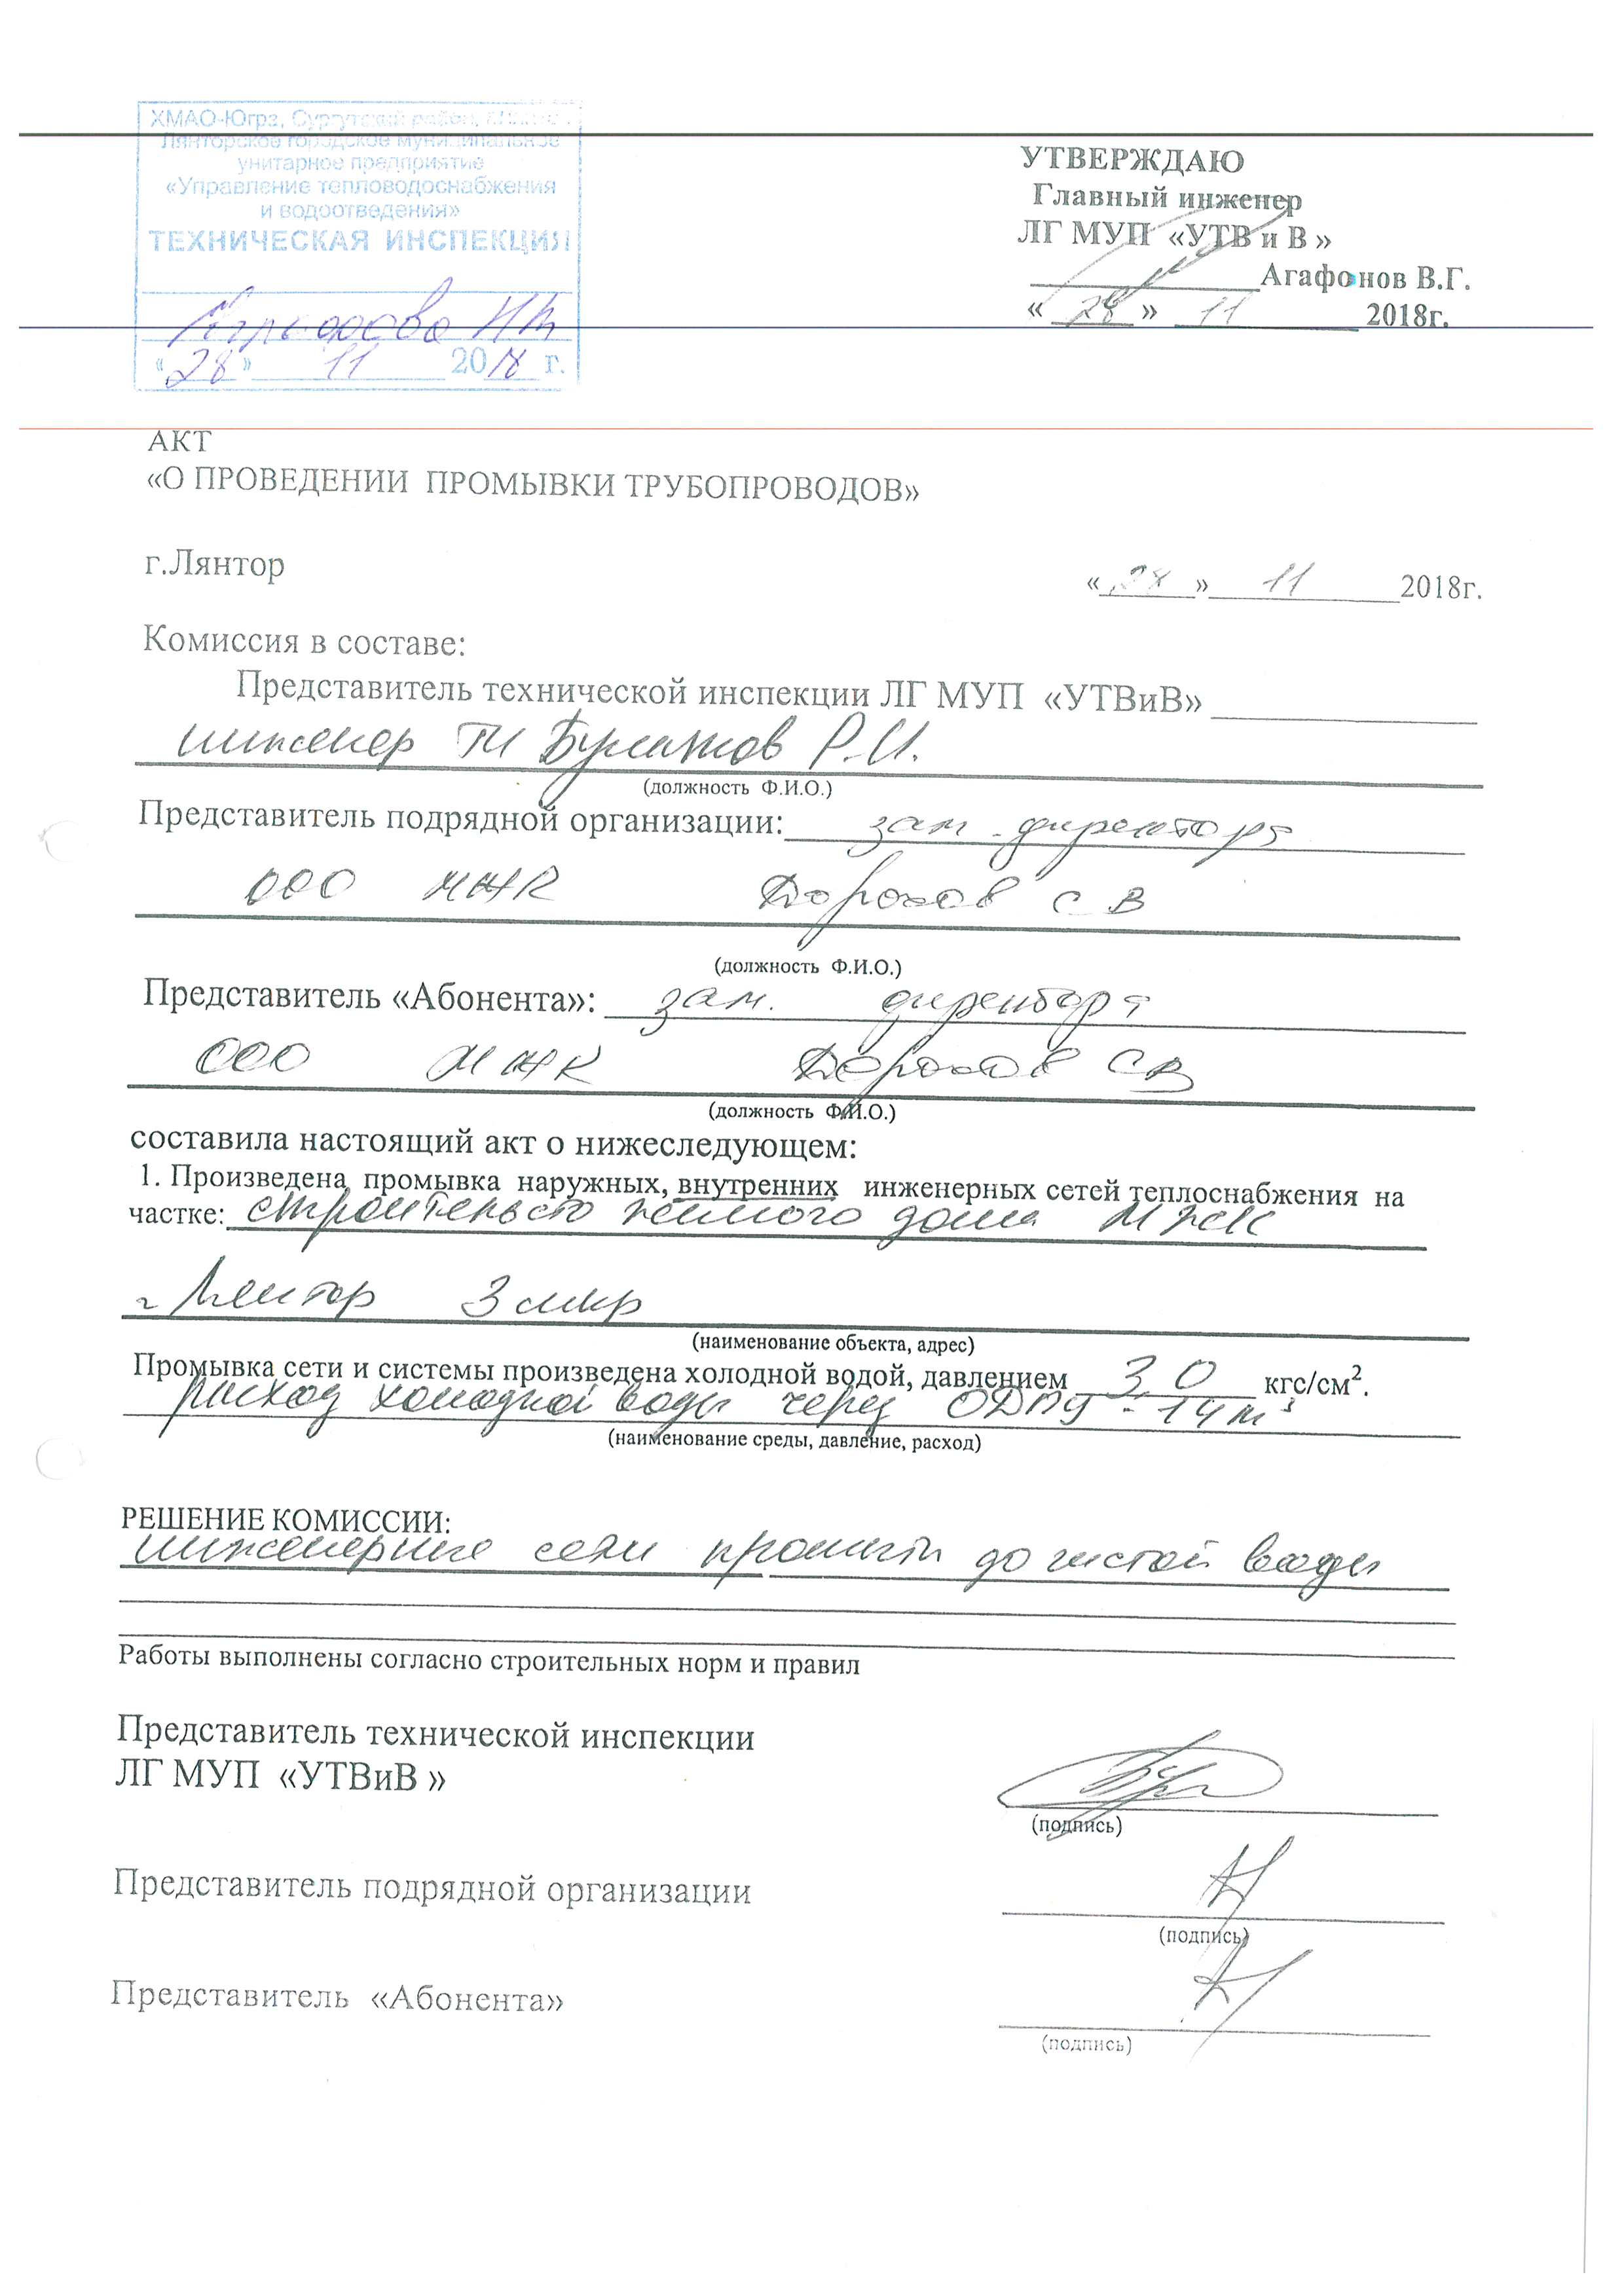 ХМАО-Югра, Сургутский район,
Лянторское городское муниципальное
унитарное предприятие
«Управление тепловодоснабжения
и водоотведения»
ТЕХНИЧЕСКАЯ ИНСПЕКЦИЯ
«28» 11 2018 г.
УТВЕРЖДАЮ
Главный инженер
ЛГ МУП «УТВ и В »
Агафонов В.Г.
« 28 » 11 2018г.
АКТ
«О ПРОВЕДЕНИИ ПРОМЫВКИ ТРУБОПРОВОДОВ»
г.Лянтор
«28» 11 2018г.
Комиссия в составе:
Представитель технической инспекции ЛГ МУП «УТВиВ»
инженер ТИ Р.И.
(должность Ф.И.О.)
Представитель подрядной организации: зам. директора
ООО МЖК Дорохов С В
(должность Ф.И.О.)
Представитель «Абонента»: зам. директора
ООО МЖК Дорохов С В
(должность Ф.И.О.)
составила настоящий акт о нижеследующем:
1. Произведена промывка наружных, внутренних инженерных сетей теплоснабжения на
частке: строительсто жилого дома МЖК
г Лянтор 3 мкр
(наименование объекта, адрес)
Промывка сети и системы произведена холодной водой, давлением 3,0 кгс/см².
расход холодной воды через ОДПУ - 14 м³
(наименование среды, давление, расход)
РЕШЕНИЕ КОМИССИИ:
инженерные сети промыты до чистой воды
Работы выполнены согласно строительных норм и правил
Представитель технической инспекции
ЛГ МУП «УТВиВ »
(подпись)
Представитель подрядной организации
(подпись)
Представитель «Абонента»
(подпись)